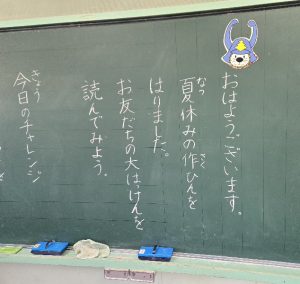 おはようございます。
夏休みの作ひんを
はりました。
お友だちの大はっけんを
読んでみよう。
今日のチャレンジ